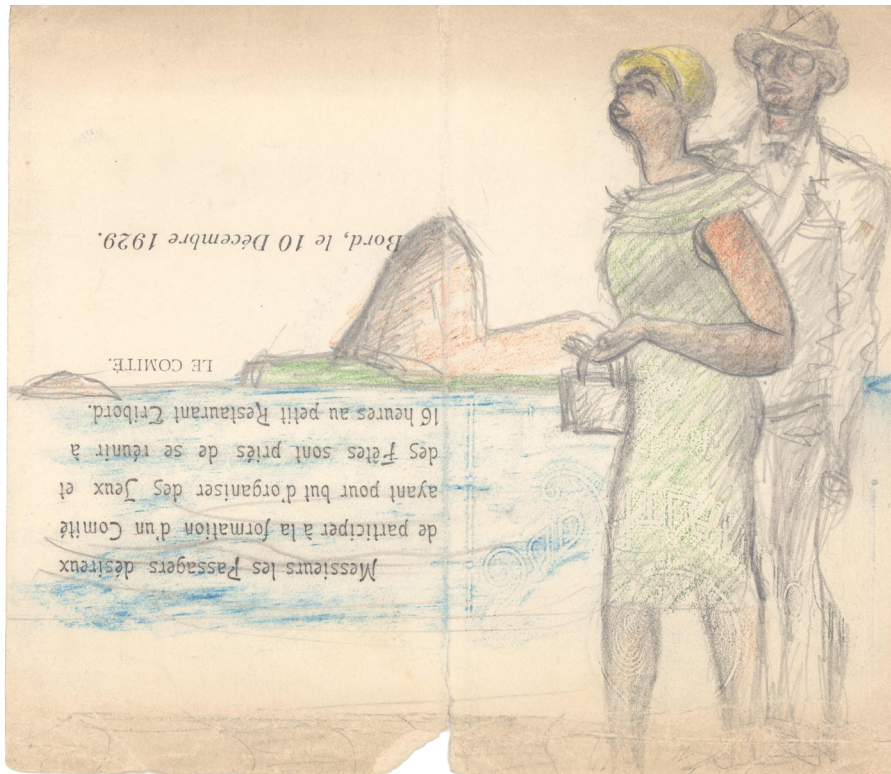 Messieurs les Passagers désireux
de participer à la formation d'un Comité
ayant pour but d'organiser des Jeux et
des Fêtes sont priés de se réunir à
16 heures au petit Restaurant Tribord.
LE COMITE.
Bord, le 10 Décembre 1929.